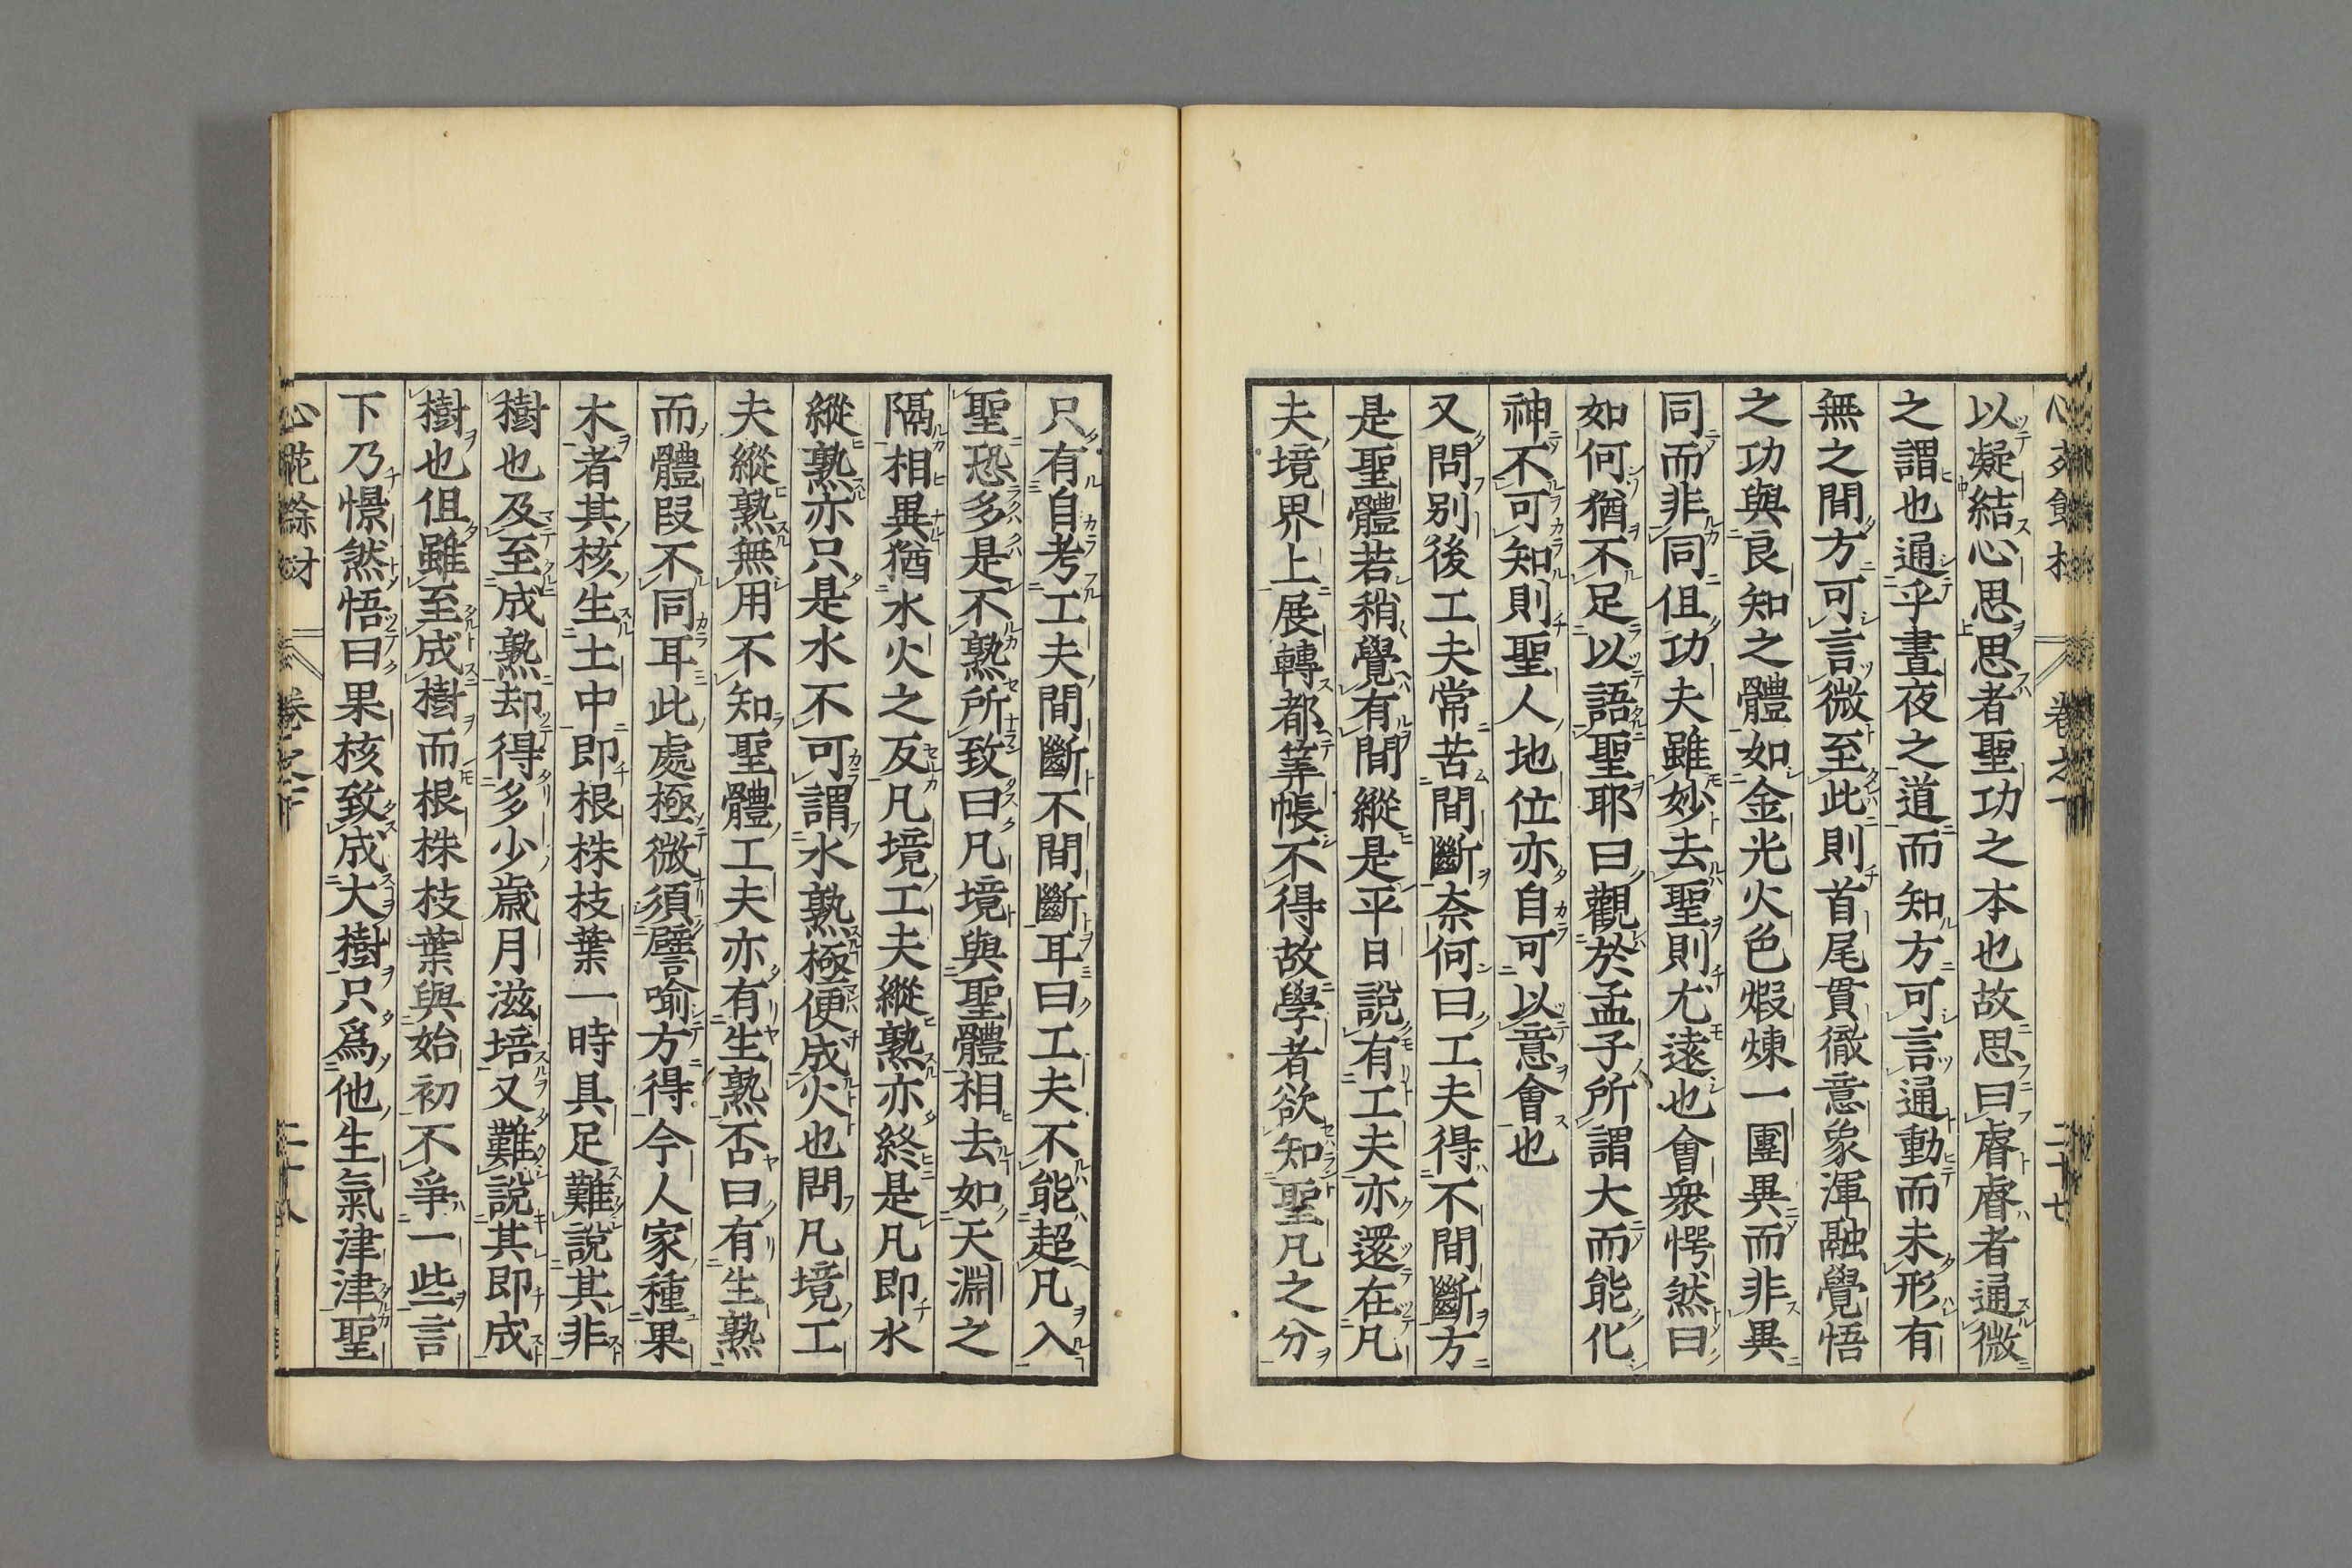 以凝結心思思者聖功之本也故思曰睿睿者通微
之謂也通乎晝夜之道而知方可言通動而未形有
無之間方可言微至此則首尾貫徹意象渾融覺悟
之功與良知之體如金光火色煅煉一團異而非異
同而非同但功夫雖妙去聖則尤遠也會衆愕然曰
如何猶不足以語聖耶曰觀於孟子所謂大而能化
神不可知則聖人地位亦自可以意會也
又問别後工夫常苦間斷奈何曰工夫得不間斷方
是聖體若稍覺有間縱是平日說有工夫亦還在凡
夫境界上展轉都筭帳不得故學者欲知聖凡之分
只有自考工夫間斷不間斷耳曰工夫不能超凡入
聖恐多是不熟所致曰凡境與聖體相去如天淵之
隔相異猶水火之反凡境工夫縱熟亦終是凡即水
縱熟亦只是水不可謂水熟極便成火也問凡境工
夫縱熟無用不知聖體工夫亦有生熟否曰有生熟
而體段不同耳此處極微須譬喻方得今人家種果
木者其核生土中即根株枝葉一時具足難說其非
樹也及至成熟却得多少歲月滋培又難說其即成
樹也但雖至成樹而根株枝葉與始初不爭一些言
下乃憬然悟曰果核致成大樹只爲他生氣津津聖
卷之下
二十八